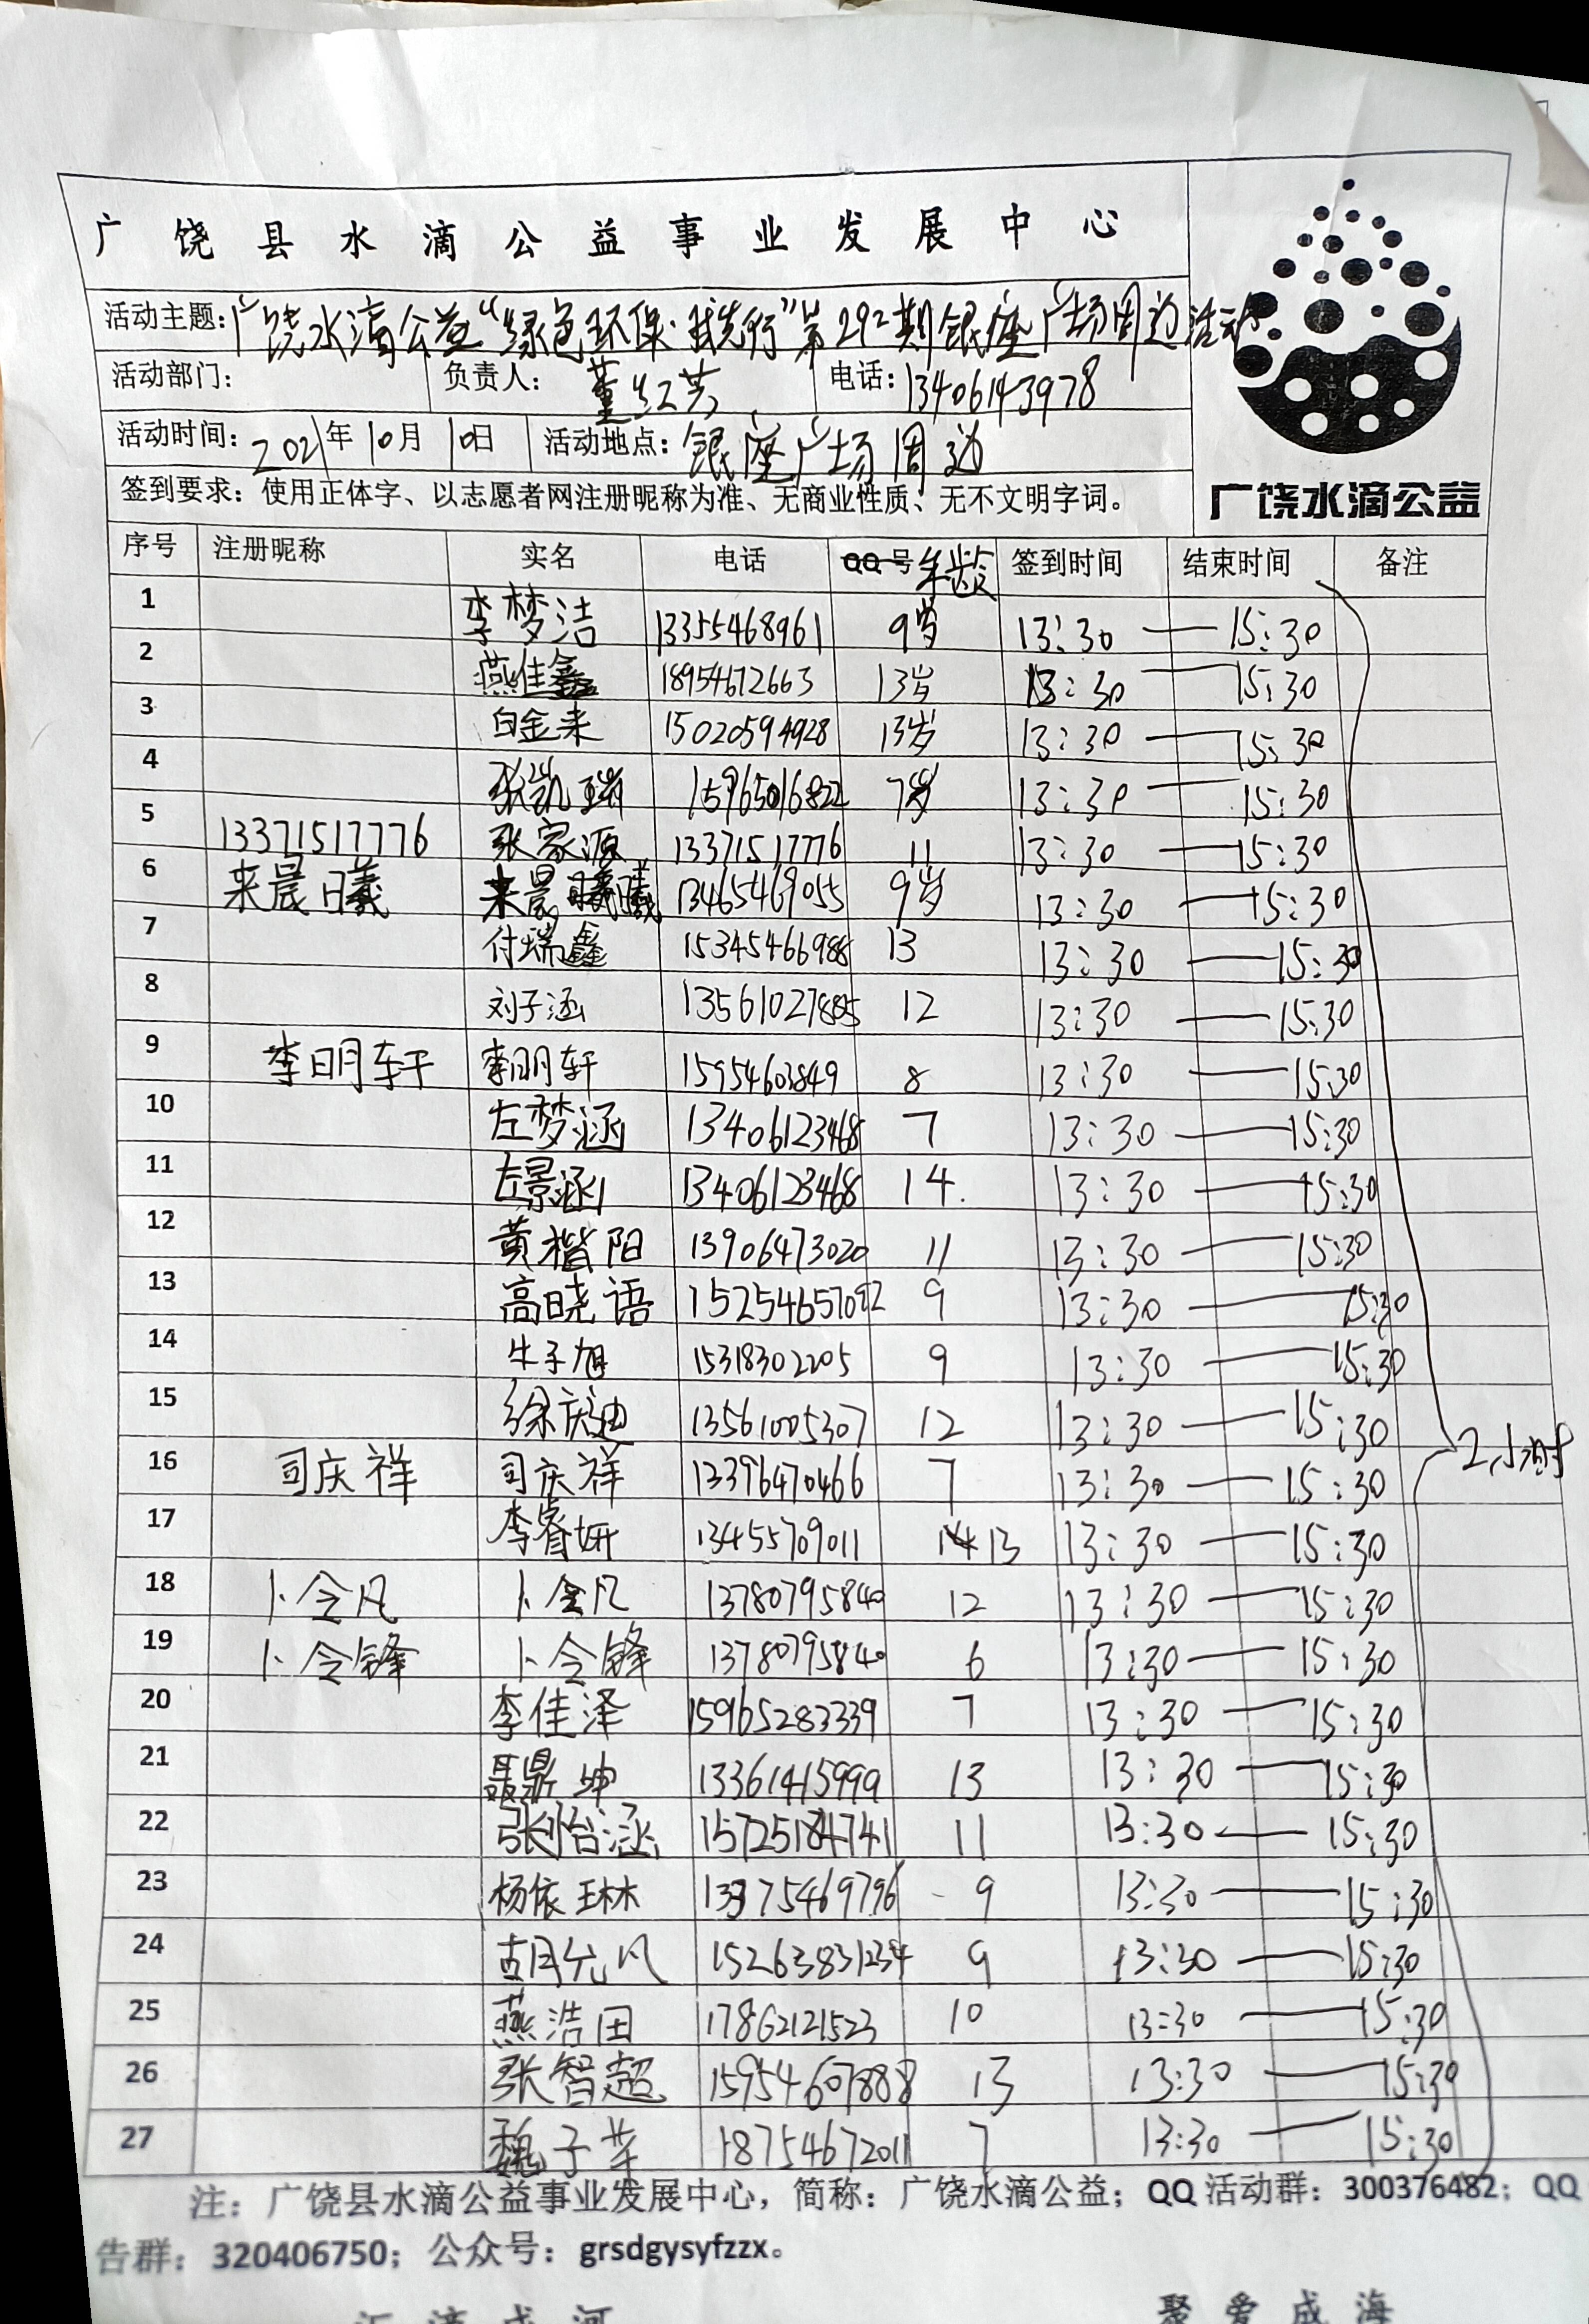 广饶县水滴公益事业发展中心
活动主题:广饶水滴公益“绿色环保·我先行”第292期银座广场周边活动
活动部门: 负责人: 董红芸 电话:13406143978
活动时间:2021年10月10日 活动地点:银座广场周边
签到要求:使用正体字、以志愿者网注册昵称为准、无商业性质、无不文明字词。
广饶水滴公益
序号 注册昵称 实名 电话 QQ号 年龄 签到时间 结束时间 备注
1 李梦洁 13355468961 9岁 13:30 — 15:30
2 燕佳鑫 18954672663 13岁 13:30 — 15:30
3 白金来 15020594928 13岁 13:30 — 15:30
4 张凯瑞 15965016822 7岁 13:30 — 15:30
5 13371517776 张家源 13371517776 11 13:30 — 15:30
6 来晨曦 来晨曦 13465469055 9岁 13:30 — 15:30
7 付瑞鑫 15345466988 13 13:30 — 15:30
8 刘子涵 13561027885 12 13:30 — 15:30
9 李明轩 李明轩 15954603849 8 13:30 — 15:30
10 左梦涵 13406123468 7 13:30 — 15:30
11 左景涵 13406123468 14. 13:30 — 15:30
12 黄楷阳 13906473020 11 13:30 — 15:30
13 高晓语 15254657092 9 13:30 — 15:30
14 牛子旭 15318302205 9 13:30 — 15:30
15 徐庆迪 13561005307 12 13:30 — 15:30
16 司庆祥 司庆祥 13396470466 7 13:30 — 15:30
2小时
17 李睿妍 13455709011 13 13:30 — 15:30
18 卜令凡 卜令凡 13780795840 12 13:30 — 15:30
19 卜令锋 卜令锋 13780795840 6 13:30 — 15:30
20 李佳泽 15965283339 7 13:30 — 15:30
21 聂鼎坤 13361415999 13 13:30 — 15:30
22 张怡涵 15725184741 11 13:30 — 15:30
23 杨依琳 13375469796 9 13:30 — 15:30
24 胡允凡 15263831234 9 13:30 — 15:30
25 燕浩田 17862121523 10 13:30 — 15:30
26 张智超 15954607888 13 13:30 — 15:30
27 魏子苹 18754672011 7 13:30 — 15:30
注:广饶县水滴公益事业发展中心,简称:广饶水滴公益;QQ活动群:300376482;QQ
告群:320406750;公众号:grsdgysyfzzx。
汇滴成河 聚爱成海